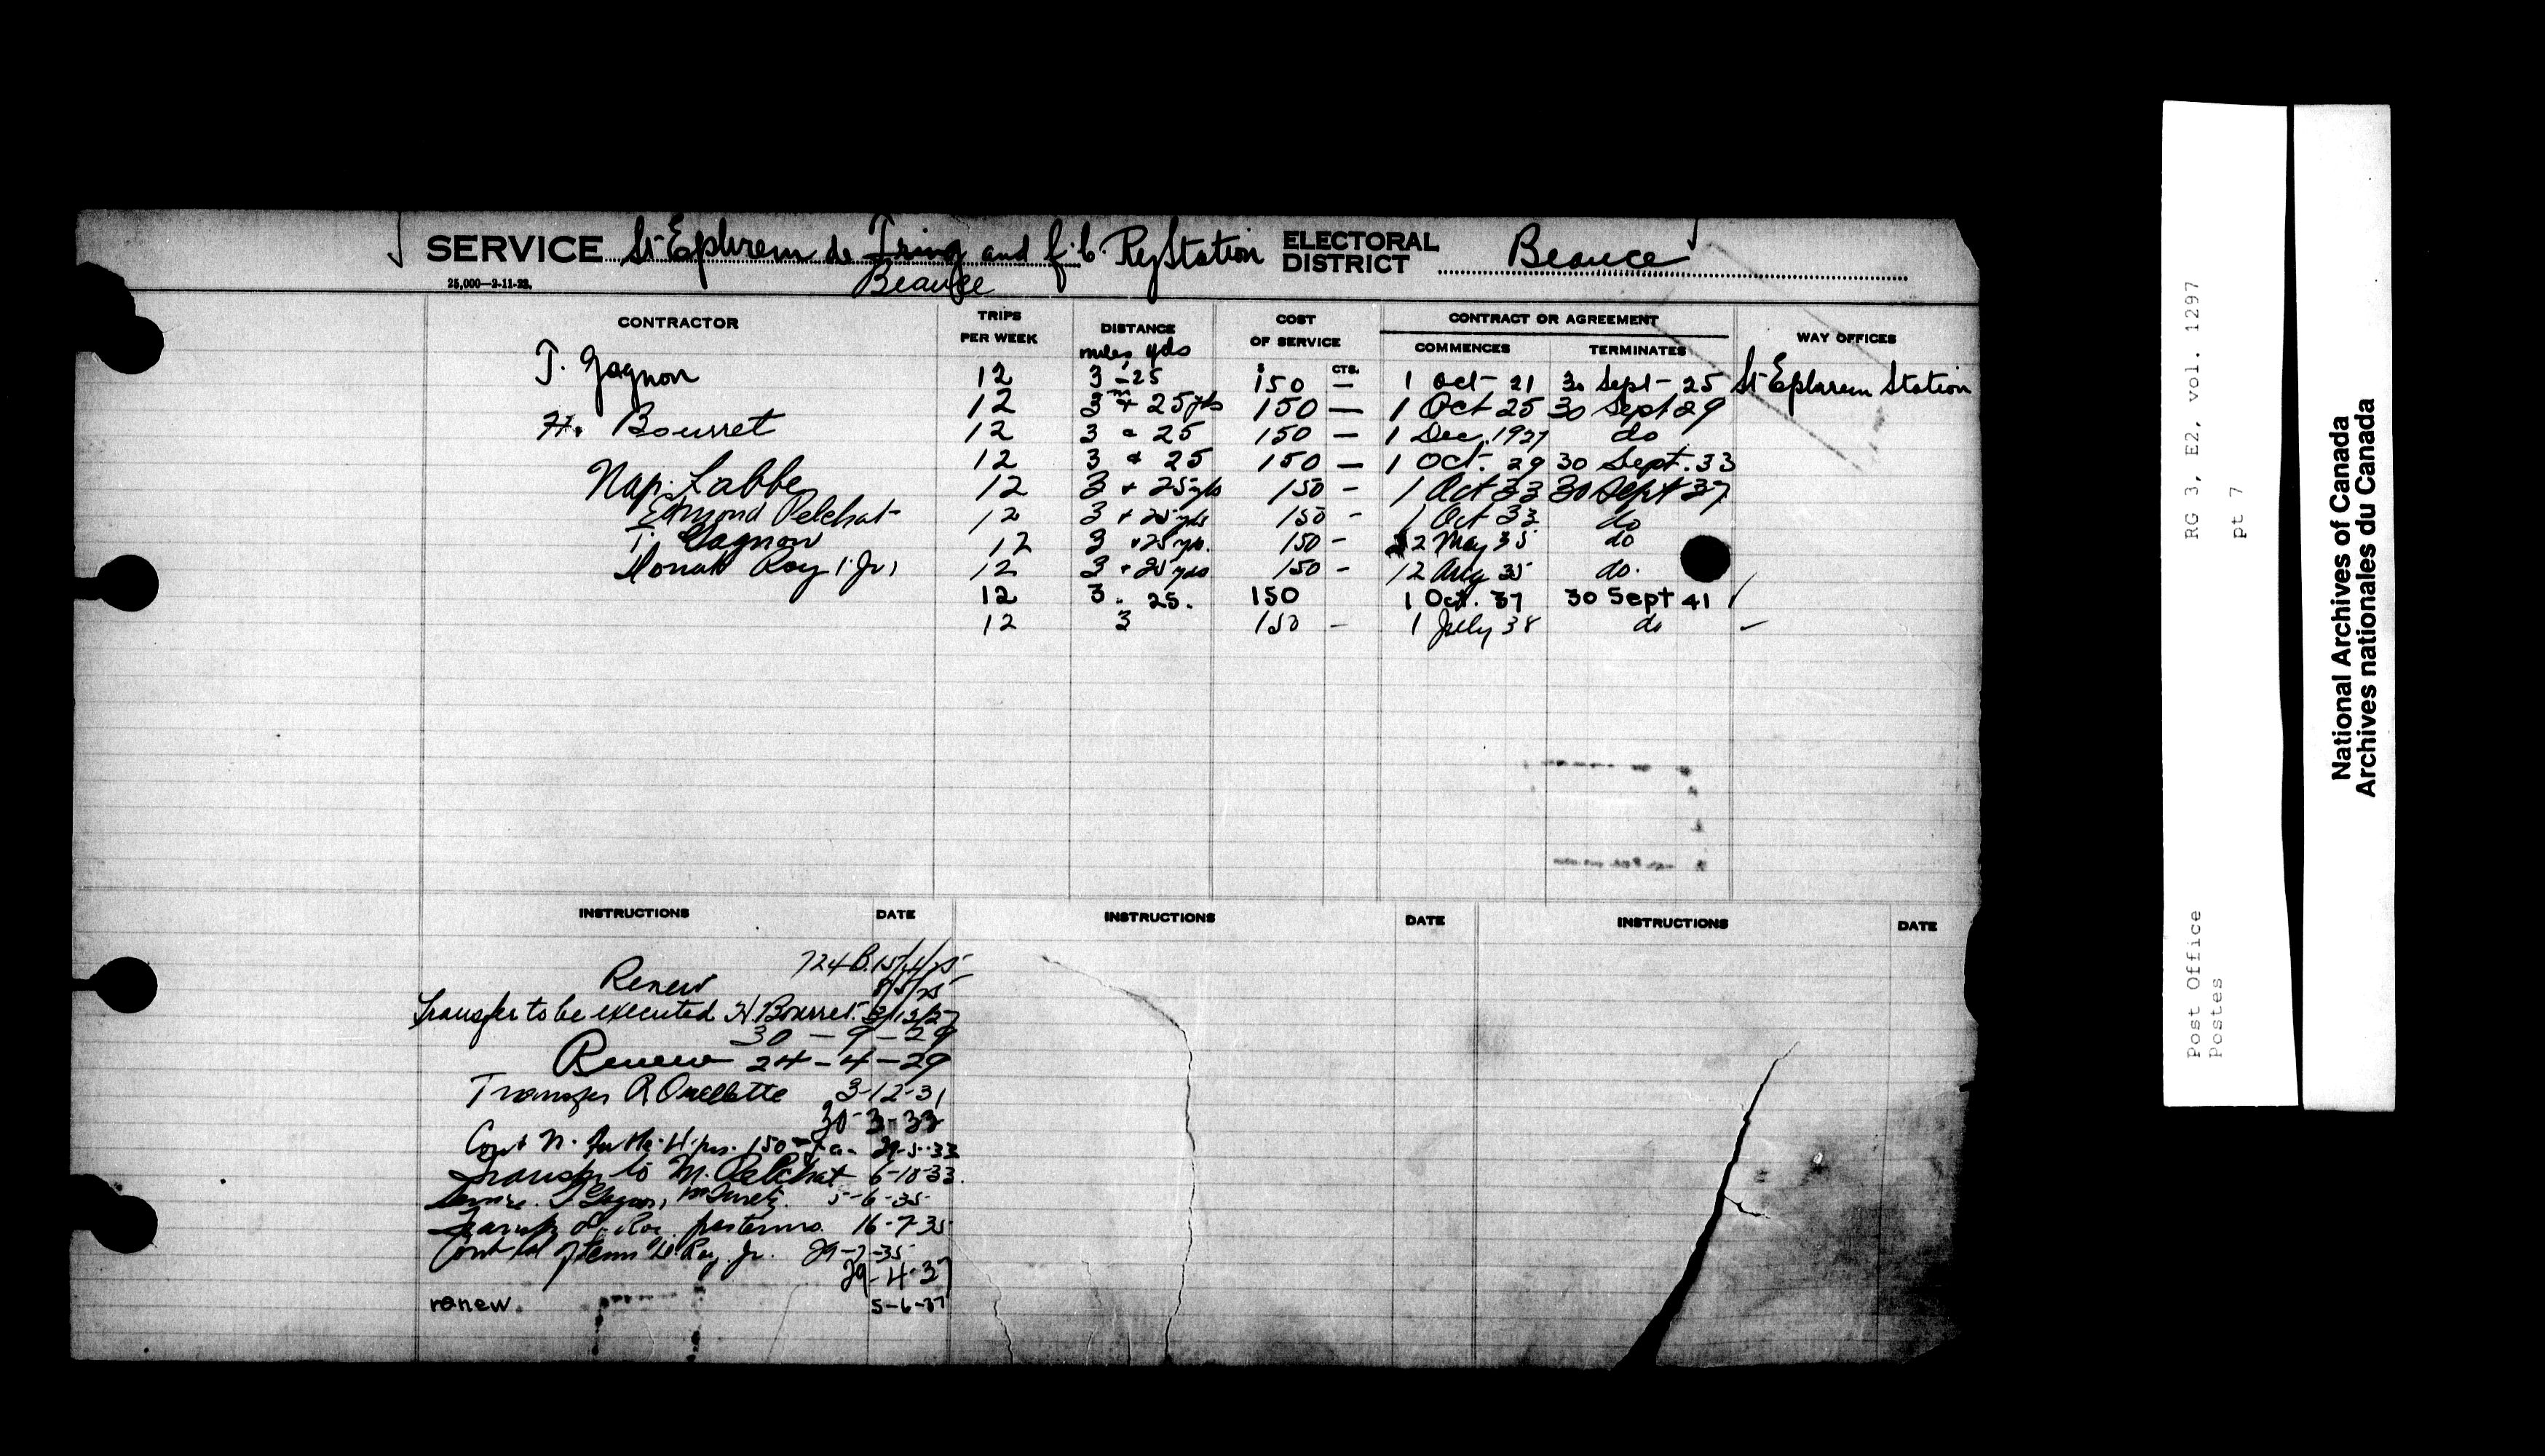 SERVICE St Ephrem de Tring and Q.C. Ry Station ELECTORAL DISTRICT Beauce
Beauce
25,000—2-11-22.
CONTRACTOR TRIPS PER WEEK DISTANCE COST OF SERVICE CONTRACT OR AGREEMENT WAY OFFICES
miles yds CTS. COMMENCES TERMINATES
T. Gagnon 12 3 - 25 150 — 1 Oct - 21 30 Sept - 25 St Ephrem Station
12 3 m + 25 yds 150 — 1 Oct 25 30 Sept 29
H. Bourret 12 3 + 25 150 — 1 Dec. 1927 do
12 3 + 25 150 — 1 Oct. 29 30 Sept. 33
Nap. Labbe 12 3 + 25 yds 150 - 1 Oct 33 30 Sept 37
Edmond Pelchat 12 3 + 25 yds 150 - 1 Oct 33 do
T. Gagnon 12 3 + 25 yds. 150 - 2 May 35 do
Donat Roy (Jr) 12 3 + 25 yds 150 - 12 Aug 35 do.
12 3. 25. 150 1 Oct. 37 30 Sept 41
12 3 150 - 1 July 38 do
INSTRUCTIONS DATE INSTRUCTIONS DATE INSTRUCTIONS DATE
724 B. 15/4/25
Renew 8/5/25
Transfer to be executed H. Bourret. 3/12/27
30 - 9 - 29
Renew 24 - 4 - 29
Transfer R Ouellette 3-12-31
30-3-33
Cont N. 150 - 29-5-33
Transfer to M. Pelchat 6-10-33.
T. Gagnon, 5-6-35
Roy 16-7-35
Roy Jr. 29-7-35
29-4-37
renew. 5-6-37
RG 3, E2, vol. 1297
pt 7
Post Office
Postes
National Archives of Canada
Archives nationales du Canada